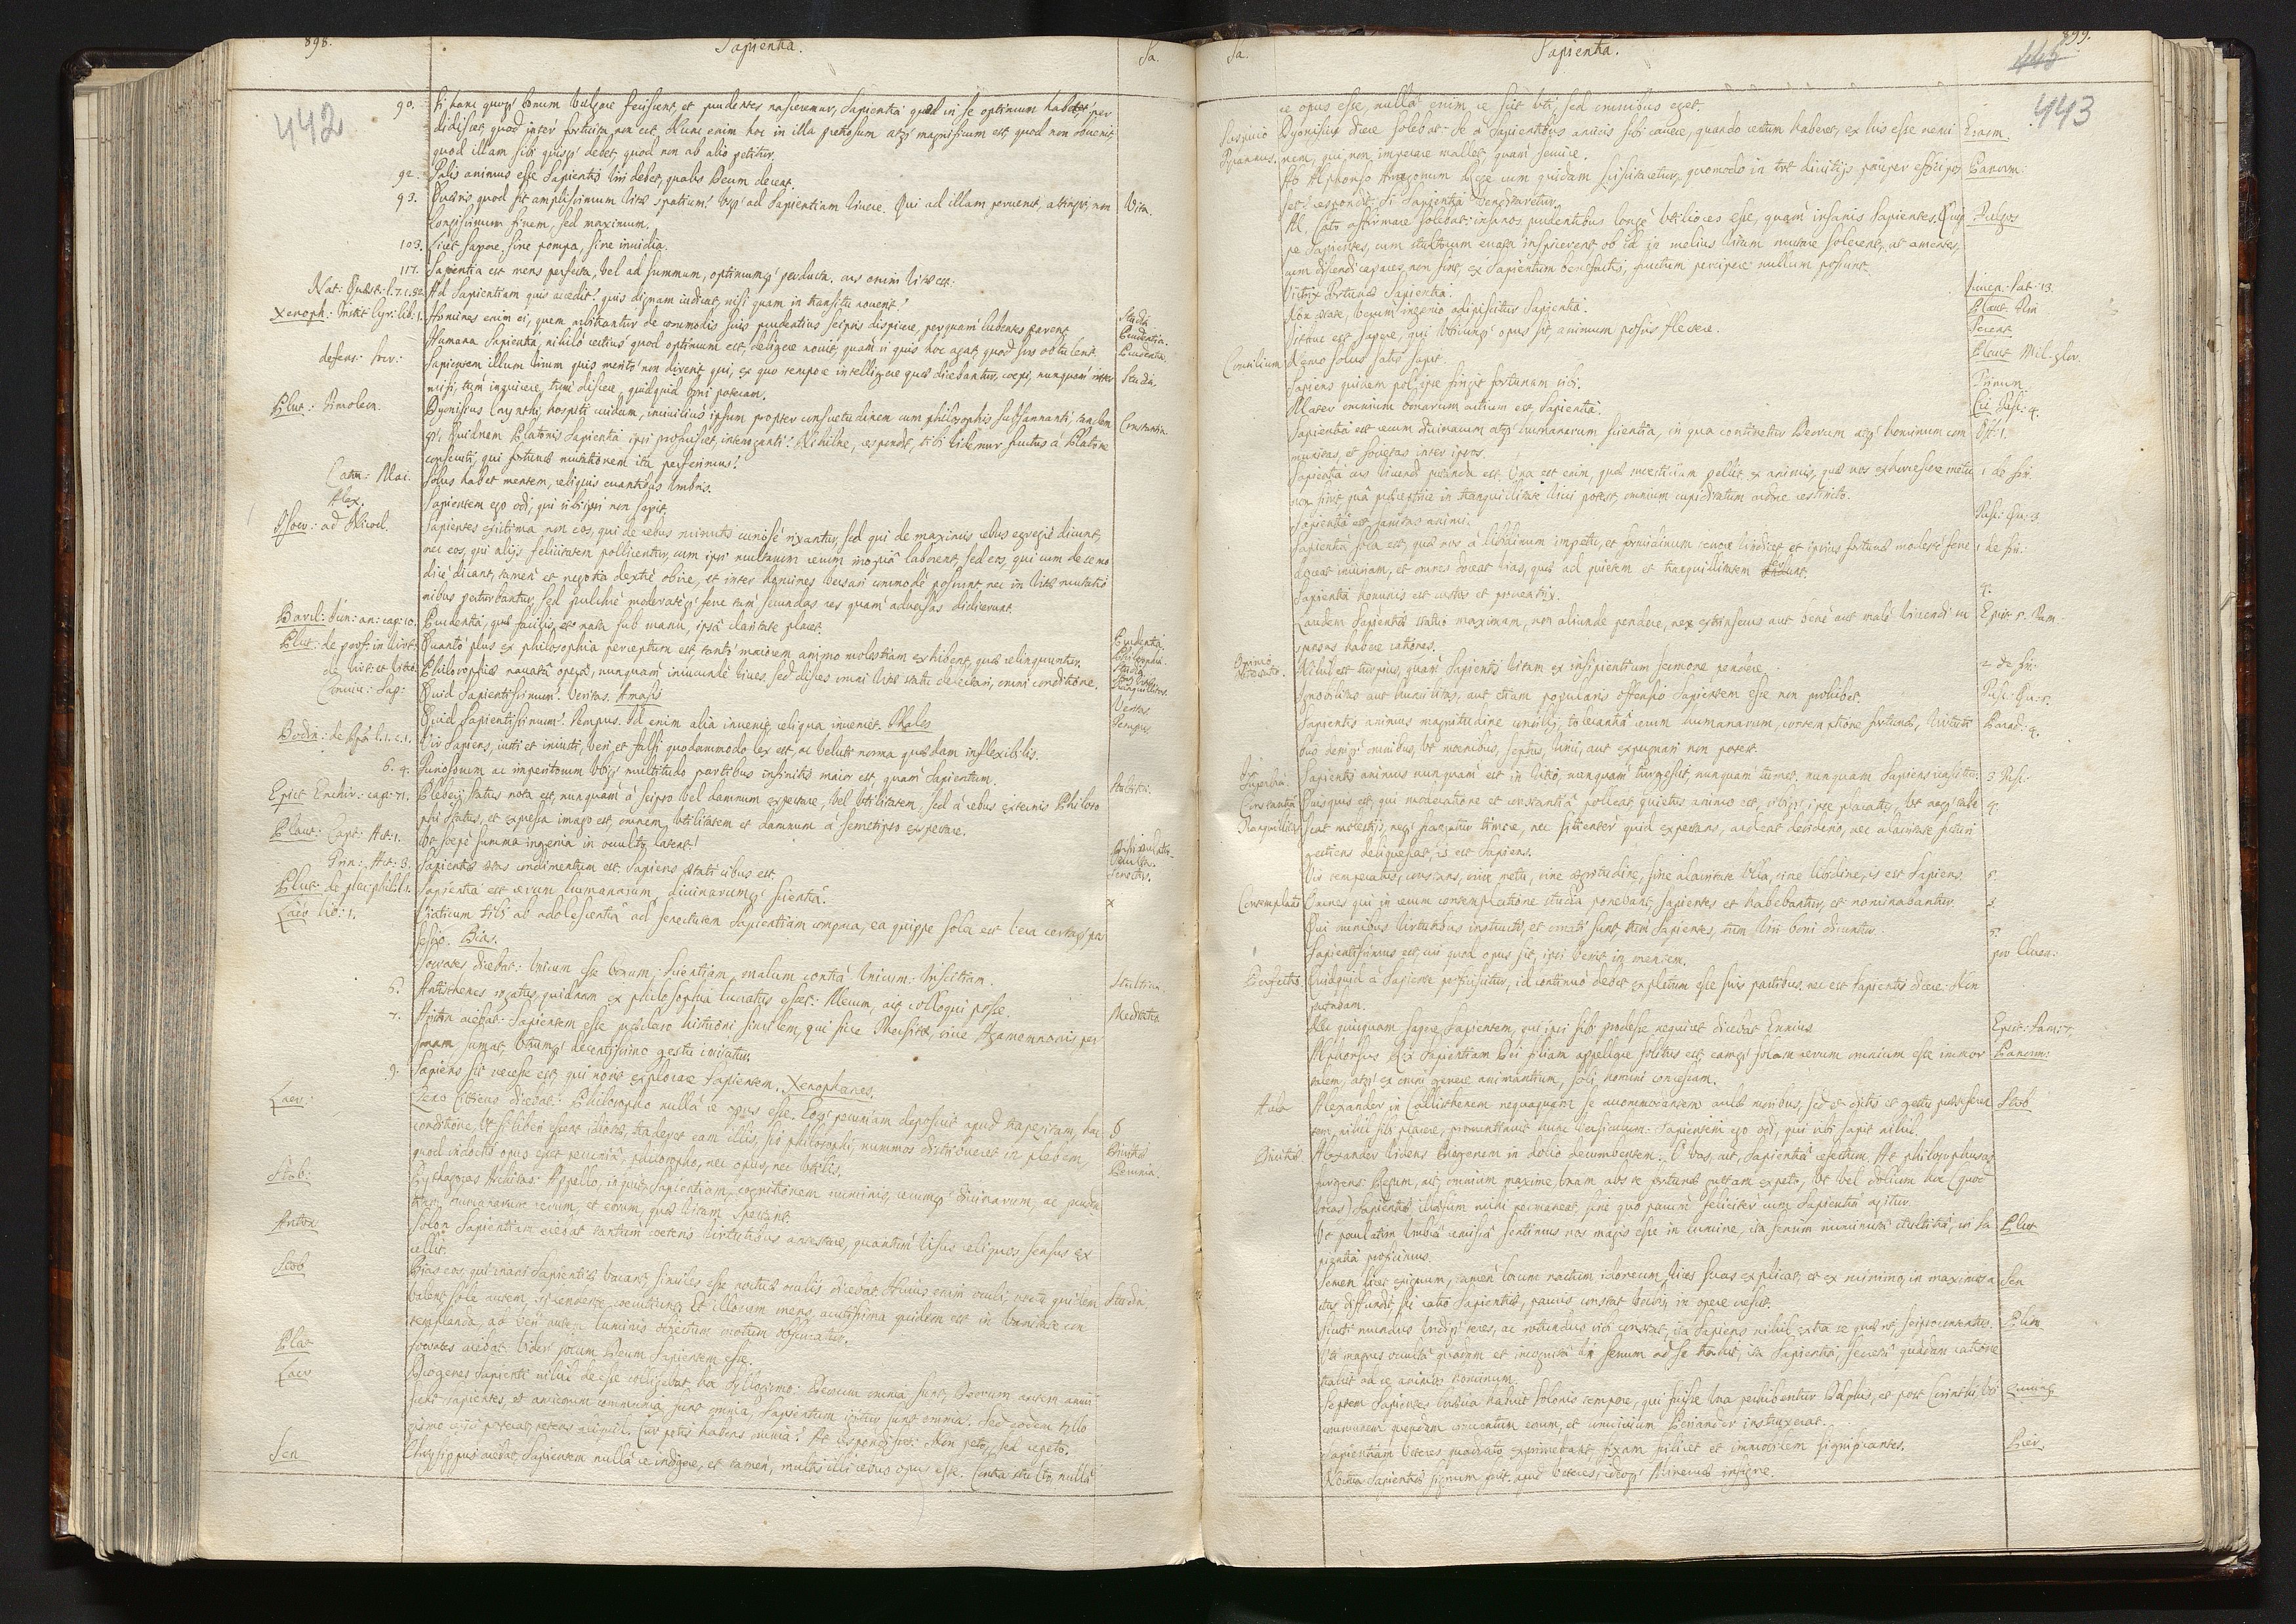 898.
Sapientia.
Sa.
442
90. Si hanc quoq' bonum vulgare fecissent, et prudentes nasceremur, Sapientia quod in se optimum habet, per
didisset, quod inter fortuita non est. Nunc enim hoc in illa pretiosum atq' magnificum est, quod non obvenit,
quod illam sibi quisq' debet, quod non ab alio petitur.
92. Talis animus esse Sapientis viri debet, qualis Deum deceat.
93. Quaeris quod sit amplissimum vitae spatium? Usq' ad Sapientiam vivere. Qui ad illam pervenit, attingit, non
longissimum finem, sed maximum. Vita.
103. Licet sapere sine pompa, sine invidia.
117. Sapientia est mens perfecta, vel ad summum, optimumq' perducta. ars enim vitae est.
Nat: Quaest: l. 7. c. 32. Ad Sapientiam quis accedit? quis dignam iudicat, nisi quam in transitu noverit?
Xenoph: Instit Cyr: lib: 1. Homines enim ei, quem arbitrantur de commodis suis prudentius seipsis dispicere, perquam lubentes parent. Prudentia.
Humana Sapientia, nihilo certius quod optimum est, deligere novit, quam si quis hoc agat, quod sors obtulerit. Prudentia.
defens: Socr: Sapientem illum virum quis merito non diceret, qui, ex quo tempore intelligere quae dicebantur, coepi, nunquam inter Studia.
misi, tum inquirere, tum discere, quidquid boni poteram.
Plut: Timoleon. Dyonisius Corynthi, hospiti cuidam, incivilius ipsum propter consuetudinem cum philosophis subsannanti, tandem Constantia.
q', Quidnam Platonis Sapientia ipsi profuisset, interroganti? Nihilne, respondit, tibi videmur fructus a Platone
consecuti, qui fortunae mutationem ita perferimus?
Caton: Mai. Solus habet mentem, reliquis errantibus umbris.
Alex. Sapientem ego odi, qui sibi ipsi non sapit.
Isocr: ad Nicocl. Sapientes existima non eos, qui de rebus minutis curiosè rixantur, sed qui de maximis rebus egregiè dicunt,
nec eos, qui alijs felicitatem pollicentur, cum ipsi multarum rerum inopiâ laborent, sed eos, qui cum de se mo
dicè dicant, tamen et negotia dextrè obire, et inter homines versari commodè possunt nec in vitae mutatio
nibus perturbantur, sed pulchrè moderatèq' ferre tam secundas res quàm adversas didicerunt.
Barcl: Eun: an: cap: 10. Prudentia, quae facilis, et nata sub manu, ipsâ claritate placet. Prudentia.
Plut: de prof. in virt: Quantò plus ex philosophia perceptum est, tantò maiorem animo molestiam exhibent, quae relinquuntur. Philosophia.
de virt. et vitio. Philosophiae navatâ operâ, nunquam iniucundè vives, sed disces omni vitae statu delectari, omni conditione. Tranquillitas.
Conviv: Sap: Quid Sapientissimum? Veritas. Amasis Veritas
Quid Sapientissimum? Tempus. Id enim alia invenit, reliqua inveniet. Thales Tempus
Bodin: de Rep. l. 1. c. 1. Vir Sapiens, iusti et iniusti, veri et falsi quodammodo lex est, ac veluti norma quaedam inflexibilis.
6. 4. Furiosorum ac imperitorum ubiq' multitudo partibus infinitis maior est, quam Sapientum.
Epict Enchir: cap: 71. Plebeij status nota est, nunquam à seipso vel damnum expectare, vel utilitatem, sed à rebus externis. Philoso Stultitia.
phi status, et expressa imago est, omnem utilitatem et damnum à semetipso expectare.
Plaut: Capt: Act: 1. Ut saepè summa ingenia in occulto latent!
Trin: Act: 3. Sapientis aetas condimentum est. Sapiens aetati cibus est. Senectus.
Plut: de plac: phil: l. 1. Sapientia est rerum humanarum, divinarumq' scientia.
Laër lib: 1. Viaticum tibi ab adolescentiâ ad senectutem Sapientiam compara, ea quippe sola est vera certaq' pos
sessio. Bias.
Socrates dicebat: Unicum esse bonum: scientiam, malum contrà unicum: Inscitiam. Stultitia.
6. Antisthenes rogatus, quidnam ex philosophia lucratus esset: Mecum, ait, colloqui posse. Meditatio
7. Ariston aiebat: Sapientem esse praeclaro histrioni similem, qui sive Thersitae, sive Agamemnonis per
sonam sumat, utrumq' decentissimo gestu imitatur.
9. Sapiens sit necesse est, qui noris explorare Sapientem. Xenophanes.
Laer: Zeno Citticus dicebat: Philosopho nullâ re opus esse. Eoq' pecuniam deposuit apud trapezitam, hac
conditione, ut si liberi essent idiotae, traderet eam illis, sin philosophi, nummos distribueret in plebem, Divitiae
quod indoctis opus esset pecuniâ, philosopho, nec opus, nec utilis. Pecunia.
Stob: Pythagoras Architas: Appello, inquit, Sapientiam, cognitionem numinis, rerumq' divinarum, ac pruden
tiam humanarum rerum, et eorum, quae vitam spectant.
Anton Solon Sapientiam aiebat tantum coeteris virtutibus antestare, quantum visus reliquos sensus ex
cellit.
Stob Bias eos, qui inani Sapientiae vacant, similes esse noctuae oculis dicebat. Huius enim oculi, noctu quidem Studia
valent, sole autem splendente, coecutiunt. Et illorum mens, acutissima quidem est in vanitate con
templanda, ad veri autem luminis obiectum moetum obscuratur.
Plat Socrates aiebat: Videri solum Deum Sapientem esse.
Laer Diogenes Sapienti nihil deesse colligebat hoc syllogismo: Deorum omnia sunt, Deorum autem amici
sunt sapientes, et amicorum communia sunt omnia, Sapientum igitur sunt omnia. Sed eodem syllo
gismo
Sen Chrysippus aiebat, Sapientem nullâ re indigere, et tamen, multis illi rebus opus esse. Contra stulto, nullâ
Sa.
Sapientia.
899.
443
re opus esse, nullâ enim re scit uti, sed omnibus eget.
Tyrannus. Dyonisius dicere solebat: Se à Sapientibus amicis sibi cavere, quando certum haberet, ex his esse nemi Erasm.
nem, qui non imperare mallet quàm servire.
Ab Alphonso Aragonum Rege cum quidam sciscitaretur, quomodo in tot divitijs pauper effici pos Panorm:
set? respondit: Si Sapientia venditaretur.
M. Cato affirmare solebat: insanos prudentibus longè utiliores esse, quàm insanis Sapientes. Quip Fulgos
pe Sapientes, cum stultorum errata inspicerent, ob id in melius vitam mutare solerent, at amentes,
cum discendi capaces non sint, ex Sapientum benefactis, fructum percipere nullum possunt.
Victrix Fortunae Sapientia. Iuven: Sat: 13.
Non aetate, verum ingenio adipiscitur Sapientia. Plaut. Trin
Istuc est sapere, qui ubicunq' opus sit, animum possis flectere. Terent
Consilium Nemo solus satis sapit. Plaut Mil. glor.
Sapiens quidem pol ipse fingit fortunam sibi. Trinum
Mater omnium bonarum artium est Sapientia.
Sapientia est rerum divinarum atq' humanarum scientia, in qua continetur Deorum atq' hominum com Off: 1.
munitas, et societas inter ipsos.
Sapientia ars vivendi putanda est. Una est enim, quae moestitiam pellit ex animis, quae nos exhorrescere metu 1 de fin
non sinit, quâ praeceptrice in tranquillitate vivi potest, omnium cupiditatum ardore restincto.
Sapientia est sanitas animi. Tusc: Qu: 3.
Sapientia sola est, quae nos à libidinum impetu, et formidinum terrore vindicet, et ipsius fortunae modestè ferre 1 de fin:
doceat iniurias, et omnes doceat vias, quae ad quietem et tranquillitatem
Sapientia hominis est custos et procuratrix. 4.
Laudem Sapientiae statuo maximam, non aliunde pendere, nec extrinsecus aut benè aut malè vivendi su Epist 5. Fam:
spensas habere rationes.
Opinio Nihil est turpius, quàm Sapientis vitam ex insipientium sermone pendere. 2 de fin:
Ignobilitas aut humilitas, aut etiam popularis offensio Sapientem esse non prohibet. Tusc: Qu: 5.
Sapientis animus magnitudine consilij, tolerantiâ rerum humanarum, contemptione fortunae, virtuti Parad: 4.
bus deniq' omnibus, ut moenibus, septus, vinci, aut expugnari non potest.
Superbia Sapientis animus nunquam est in vitio, nunquam turgescit, nunquam tumet. nunquam Sapiens irascitur. 3 Tusc.
Constantia Quisquis est, qui moderatione et constantiâ polleat, quietus animo est, sibiq' ipse placatus, ut neq' tabe 4.
Tranquillitas scat molestijs, neq' frangatur timore, nec sitienter quid expectans, ardeat desiderio, nec alacritate futuri
gestiens deliquescat, is est Sapiens.
Vir temperatus, constans, sine metu, sine aegritudine, sine alacritate ulla, sine libidine, is est Sapiens. 5.
Contemplatio Omnes qui in rerum contemplatione studia ponebant, Sapientes et habebantur, et nominabantur. 5.
Qui omnibus virtutibus instructi, et ornati sunt, tum Sapientes, tum viri boni dicuntur. 5.
Sapientissimus est, cui quod opus sit, ipsi venit in mentem. pro Cluen:
Perfectio Quidquid à Sapiente proficiscitur, id continuò debet expletum esse suis partibus. nec est Sapientis dicere: Non
putabam.
Ne quisquam sapere Sapientem, qui ipsi sibi prodesse nequiret dicebat Ennius. Epist: Fam: 7.
Alphonsus Rex Sapientiam Dei filiam appellare solitus est, eamq' solam rerum omnium esse immor Panorm:
talem, atq' ex omni genere animantium, soli, homini concessam.
Aula Alexander in Callisthenem nequaquam se accommodantem aulae moribus, sed et dictis et gestu prae se feren Stob
tem, nihil sibi placere, pronuntiavit hunc versiculum: Sapientem ego odi, qui sibi sapit nihil.
Divitiae Alexander videns Diogenem in dolio decumbentem: O vas, ait, Sapientiâ refertum. At philosophus as
surgens: Regum, ait, omnium maxime, unam abs te fortunae guttam expeto, ut vel dolium hoc (quod
vocas) Sapientiae illusum mihi permaneat, sine quo parum feliciter cum Sapientiâ agitur.
Ut paulatim umbrâ remissâ sentimus nos magis esse in lumine, ita sensim minutâ stultitiâ, in Sa Plut
pientiâ proficimus.
Semen licet exiguum, tamen locum nactum idoneum, vires suas explicat, et ex minimo, in maximos a Sen
ctus diffundit. Sic ratio Sapientiae, paucis constat verbis, in opere crescit.
Sicuti mundus undiq' teres, ac rotundus sibi constat, ita Sapiens nihil extra se quaerit, seipso contentus. Plin
Uti magnes occultâ quadam et incognitâ vi ferrum ad se trahit, ita Sapientia, secretâ quâdam ratione
trahit ad se animos hominum.
Septem Sapientes Graecia habuit Solonis tempore, qui fuisse una perhibentur Delphis, et post Corinthi, ubi
communem quendam conventum eorum, et convivium Periander instruxerat.
Sapientiam Veteres quadrato exprimebant, fixam scilicet et immobilem significantes. Pier.
Noctua Sapientiae signum fuit, apud veteres, ideoq' Minervae insigne.